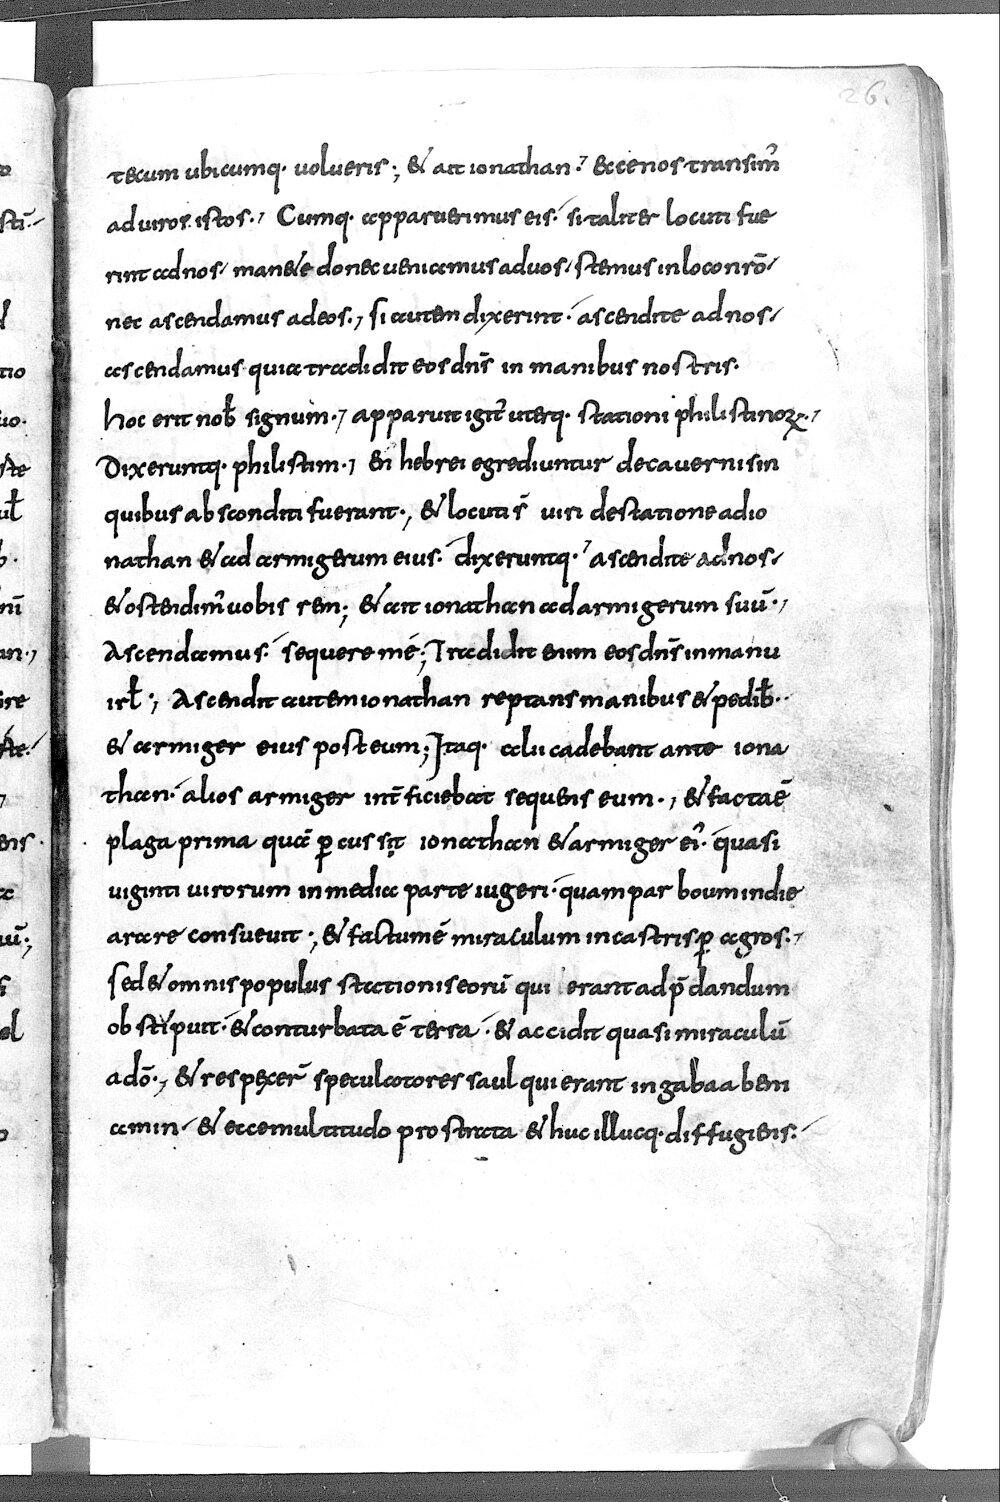 26.
tecum ubicumq· uolueris; & ait ionathan·⁊ Ecce nos transim̃
ad uiros istos·, Cumq· apparuerimus eis· si taliter locuti fue
rint ad nos/ man&e donec ueniamus ad uos/ stemus in loco nrō/
nec ascendamus ad eos·, si autem dixerint· ascendite ad nos/
ascendamus quia tradidit eos dn̄s in manibus nostris·
hoc erit nob̄ signum·, apparuit igit̃ uterq· stationi philistinoꝝ·,
Dixeruntq· philistiim·, En hebrei egrediuntur de cauernis in
quibus absconditi fuerant·, & locuti s̄ uiri de statione ad io
nathan & ad armigerum eius· dixeruntq·⁊ ascendite ad nos/
& ostendim̃ uobis rem; & ait ionathan ad armigerum suū·,
Ascendamus· sequere me; Tradidit enim eos dn̄s in manu
irł·, Ascendit autem ionathan reptans manibus & pedib̄··
& armiger eius post eum; Itaq· alii cadebant ante iona
than· alios armiger int̄ficiebat sequens eum·, & facta ē
plaga prima quā ꝑcussit ionathan & armiger ei̾· quasi
uiginti uirorum in media parte iugeri· quam par boum in die
arare consueuit·, & factum ē miraculum in castris ꝑ agros·,
sed & omnis populus stationis eorū qui erant ad p̄dandum
obstipuit· & conturbata ē terra· & accidit quasi miraculū
a dō·, & respexer̄ speculatores saul qui erant in gabaa beni
amin/ & ecce multitudo prostrata & huc illucq· diffugiens·